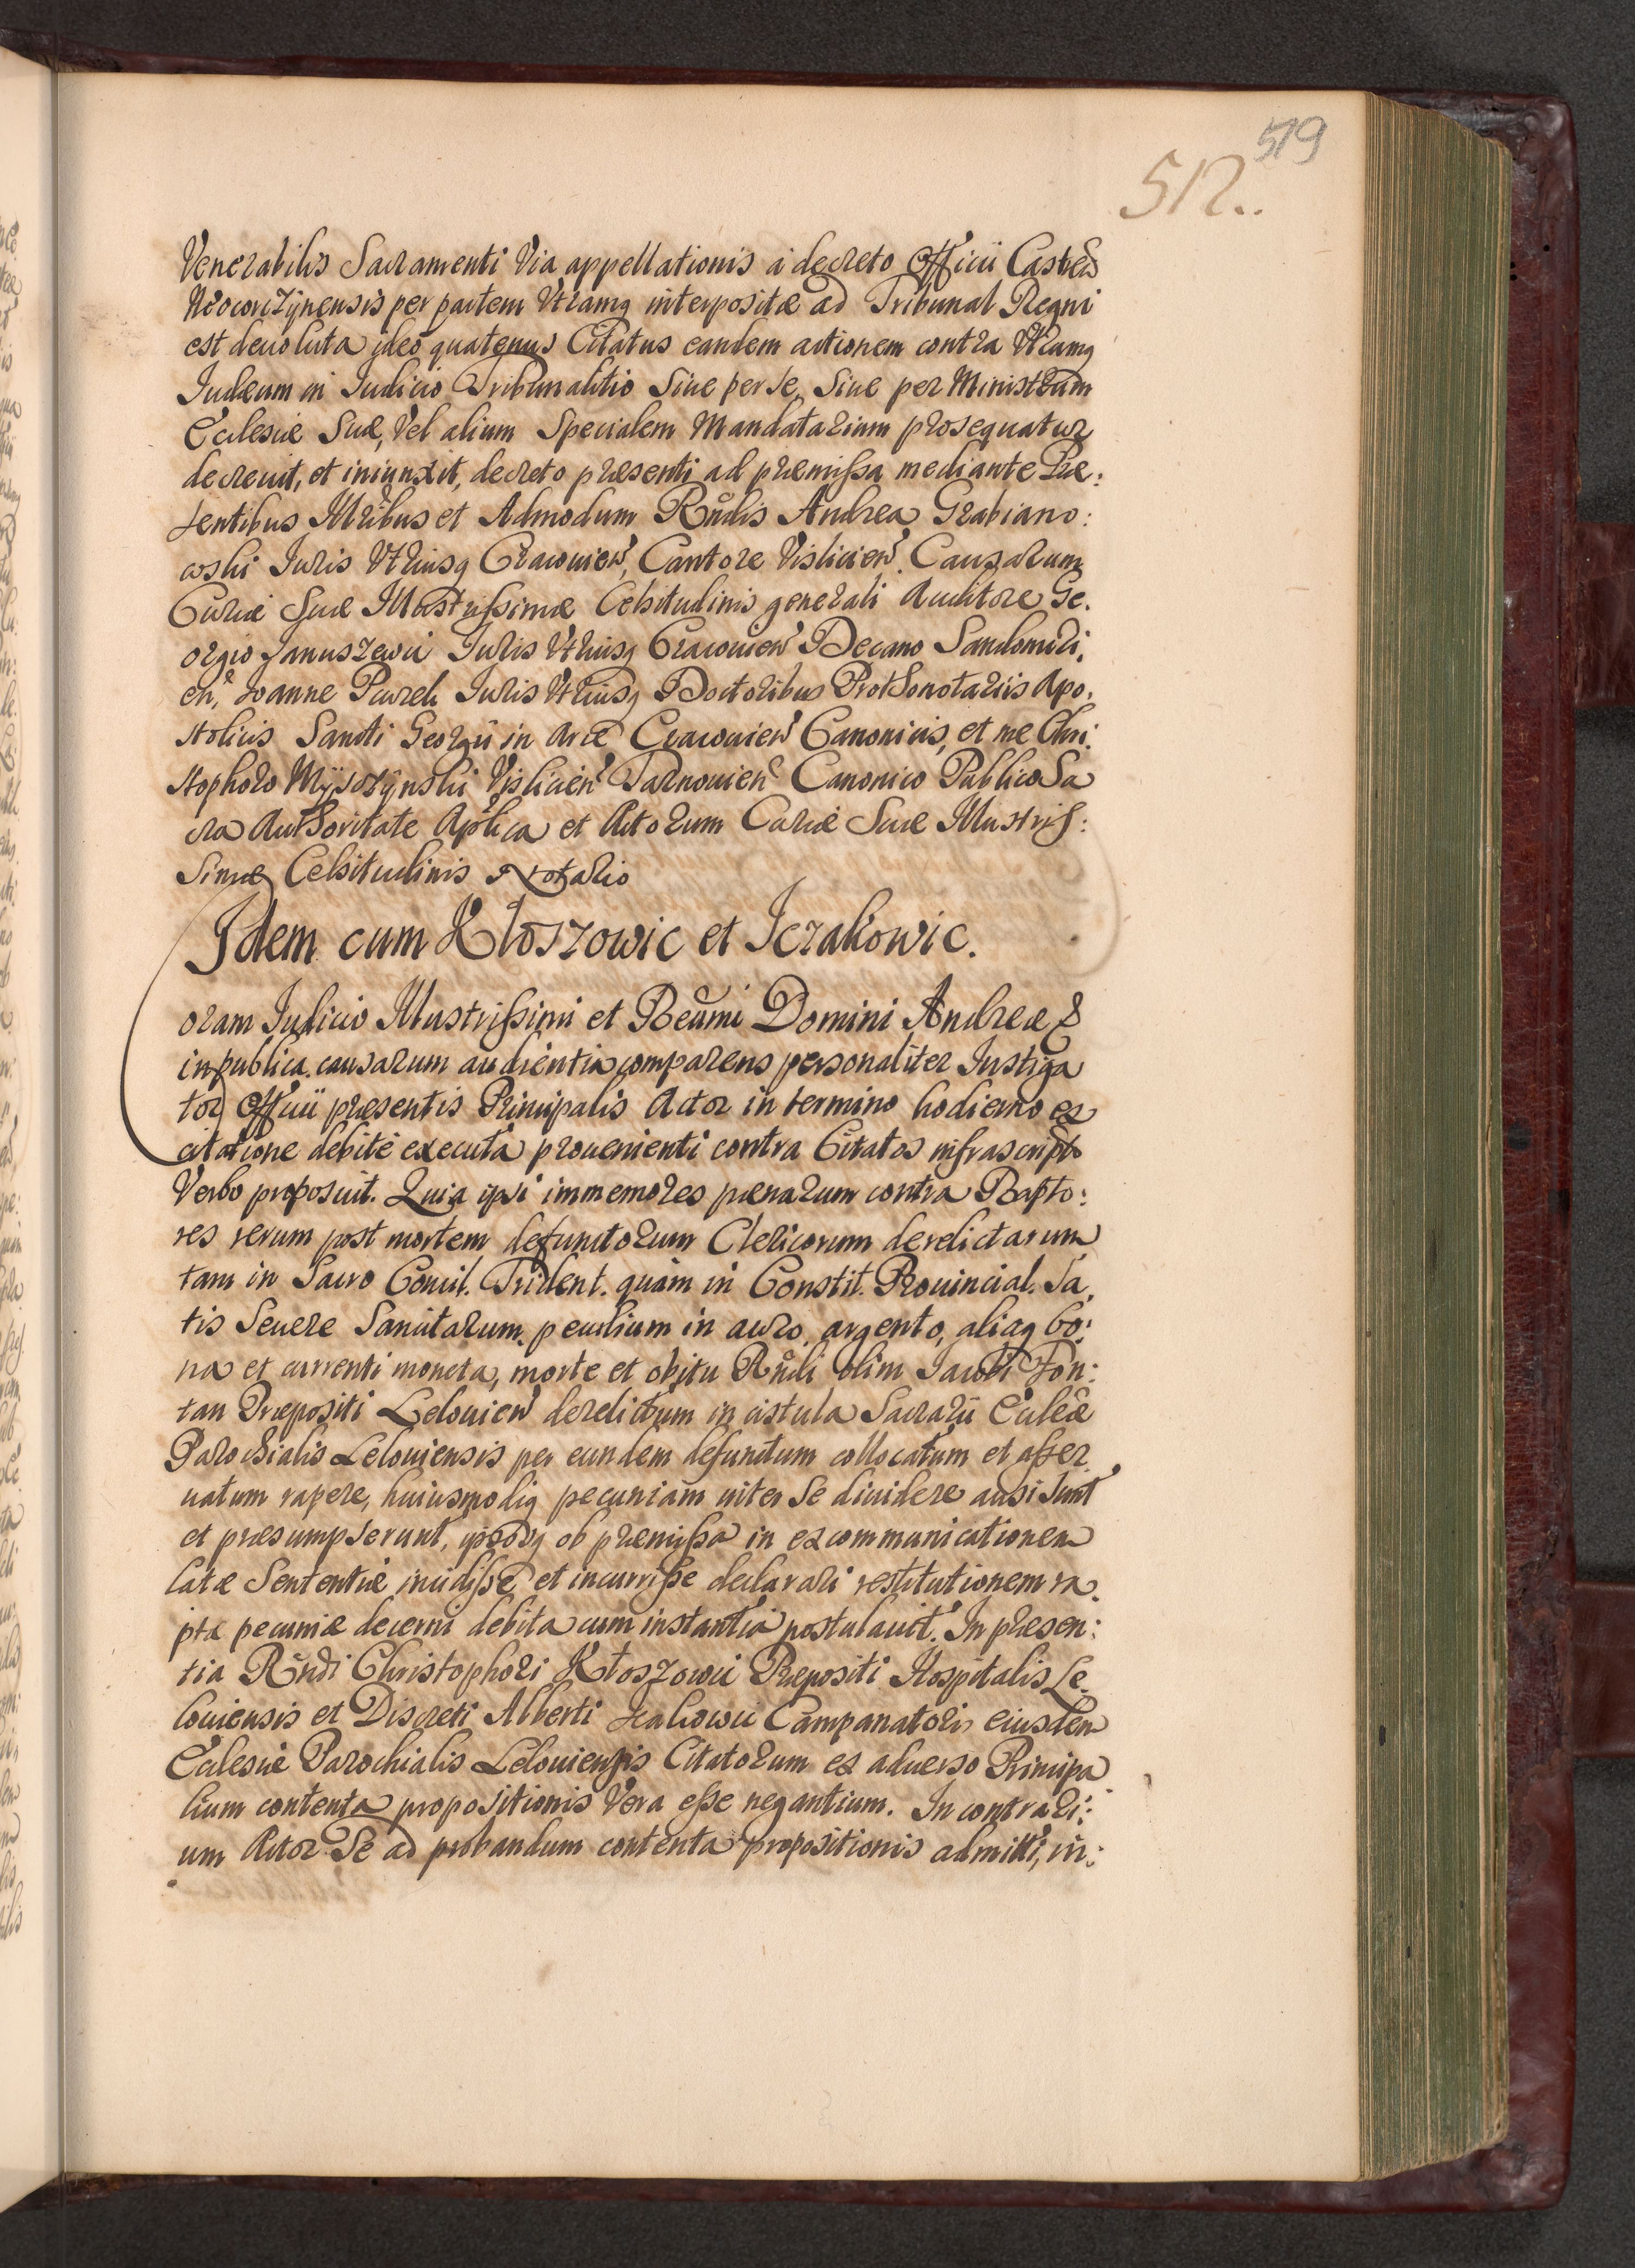 519
512..
Venerabilis Sacramenti Via appellationis à decreto Officii Castren̄
Neocorczÿnensis per partem Vtramq interpositæ ad Tribunal Regni
est deuoluta ideo quatenus Citatus eandem actionem contra Vtramq
Iudæam in Iudicio Tribunalitio Siue per se, Siue per Ministrum
Ecclesiæ Suæ, Vel alium Specialem Mandatarium prosequatur
decreuit, et iniunxit, decreto præsenti ad præmissa mediante Præ:
sentibus Illribus et Admodum Rndis Andrea Grabiano:
wski Iuris Vtriusq Cracouien, Cantore Vislicien. Causarum
Curiæ Suæ Illustrissimæ Celsitudinis generali Auditore Ge.
orgio Januszewic Iuris Vtriusq Cracouien Decano Sandomiri.
en, Joanne Pawreli Iuris Vtriusq Doctoribus Prothonotariis Apo.
stolicis Sancti Georgii in Arce Cracouien Canonicis, et me Chri.
stophoro Mÿszÿnski Vislicien Tarnouien Canonico Publico Sa
cra Authoritate Aplica et Actorum Curiæ Suæ Illustris:
simæ Celsitudinis Notario
Idem cum Kłoszowic et Iczakowic.
Coram Iudicio Illustrissimi et Reumi Domini Andreæ &
in publica causarum audientia comparens personaliter Instiga
tor Officii præsentis Principalis Actor in termino hodierno ex
citatione debitè executa prouenienti contra Citatos infrascriptos
Verbo proposuit. Quia ipsi immemores pœnarum contra Rapto:
res rerum post mortem defunctorum Clericorum derelictarum
tam in Sacro Concil. Trident. quàm in Constit. Prouincial. Sa.
tis Seuere Sancitarum, peculium in auro, argento, aliaq bo:
na et currenti moneta, morte et obitu Rndi olim Jacobi Fon:
tan Præpositi Lelouien derelictum in cistula Sacrarii Ecclæ
Parochialis Lelouiensis per eundem defunctum collocatum et asser
uatum rapere, huiusmodiq pecuniam inter Se diuidere ausi sunt
et præsumpserunt, ipsosq ob præmissa in excommunicationem
latæ Sententiæ incidisse et incurrisse declarari restitutionem ra.
ptæ pecuniæ decerni debita cum instantia postulauit. In præsen:
tia Rndi Christophori Kłoszowic Præpositi Hospitalis Le.
louiensis et Discreti Alberti Jcakowic Campanatoris eiusdem
Ecclesiæ Parochialis Lelouiensis Citatorum ex aduerso Principa
lium contenta propositionis Vera esse negantium. In contrari:
um Actor Se ad probandum contenta propositionis admitti, in: